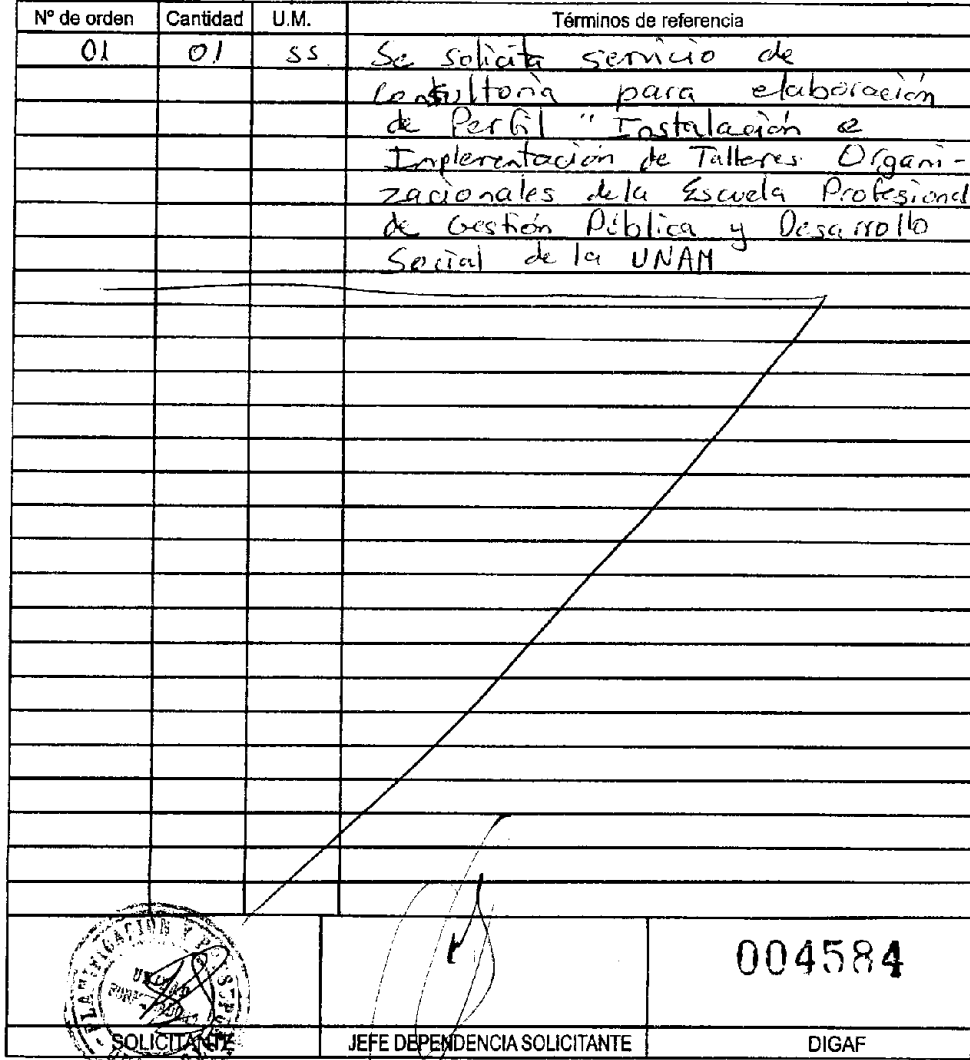 Nº de orden Cantidad U.M. Términos de referencia
01 01 SS Se solicita servicio de
consultoria para elaboración
de Perfil " Instalación e
Implementación de Talleres Organi-
zacionales de la Escuela Profesional
de Gestión Pública y Desarrollo
Social de la UNAM
PLANIFICACIÓN Y
UNIDAD
004584
SOLICITANTE JEFE DEPENDENCIA SOLICITANTE DIGAF